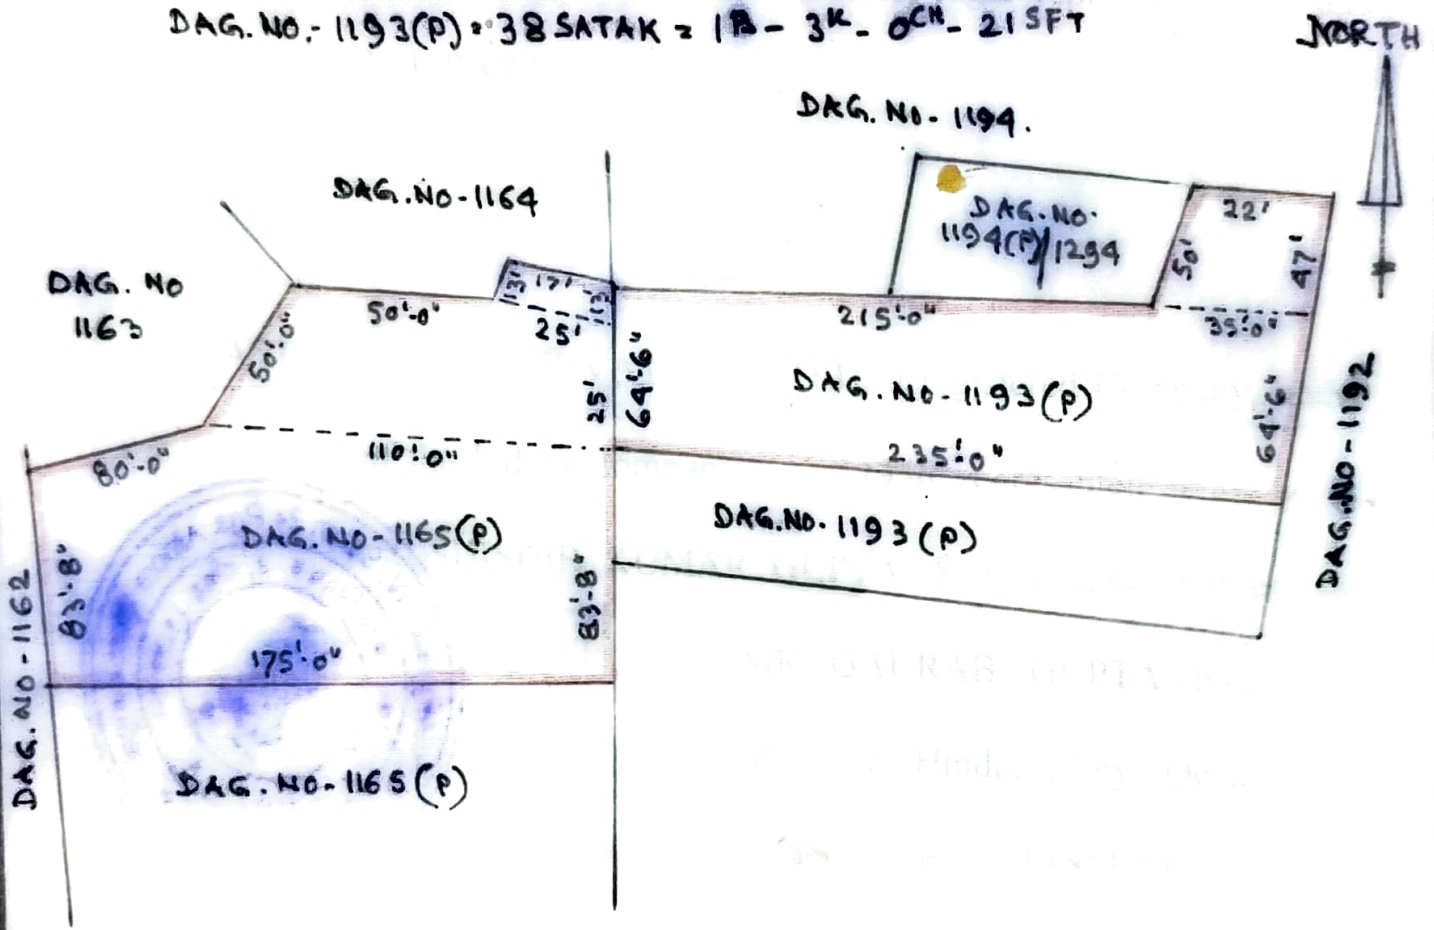 DAG. NO.- 1193(P) = 38 SATAK = 1B - 3K - 0CH - 21 SFT
NORTH
DAG. NO - 1194.
DAG. NO - 1164
DAG. NO.
1194(P)/1294
22'
50'
47'
DAG. NO
1163
13'
17'
13'
50'-0"
25'
215'-0"
35'-0"
50'-0"
25'
64'-6"
DAG. NO - 1193(P)
64'-6"
DAG. NO - 1192
80'-0"
110'-0"
235'-0"
DAG. NO - 1165(P)
DAG. NO. 1193(P)
83'-8"
83'-8"
DAG. NO - 1162
175'-0"
DAG. NO - 1165(P)